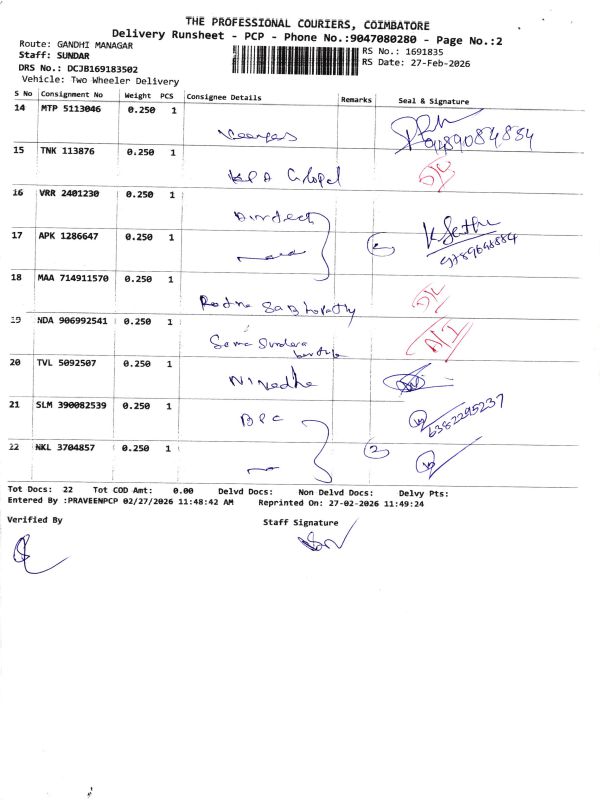 THE PROFESSIONAL COURIERS, COIMBATORE
Delivery Runsheet - PCP - Phone No.:9047080280 - Page No.:2
Route: GANDHI MANAGAR
RS No.: 1691835
Staff: SUNDAR
RS Date: 27-Feb-2026
DRS No.: DCJB169183502
Vehicle: Two Wheeler Delivery
S No Consignment No Weight PCS Consignee Details Remarks Seal & Signature
14 MTP 5113046 0.250 1
9489084834
15 TNK 113876 0.250 1
KPA Global D/L
16 VRR 2401230 0.250 1
Dirdect
17 APK 1286647 0.250 1
2 K Sathi
9789698884
18 MAA 714911570 0.250 1
D/L
19 NDA 906992541 0.250 1
Sema Sundara
N/I
20 TVL 5092507 0.250 1
Nivedha
21 SLM 390082539 0.250 1
BPC 6382295237
22 NKL 3704857 0.250 1
2
Tot Docs: 22 Tot COD Amt: 0.00 Delvd Docs: Non Delvd Docs: Delvy Pts:
Entered By :PRAVEENPCP 02/27/2026 11:48:42 AM Reprinted On: 27-02-2026 11:49:24
Verified By Staff Signature